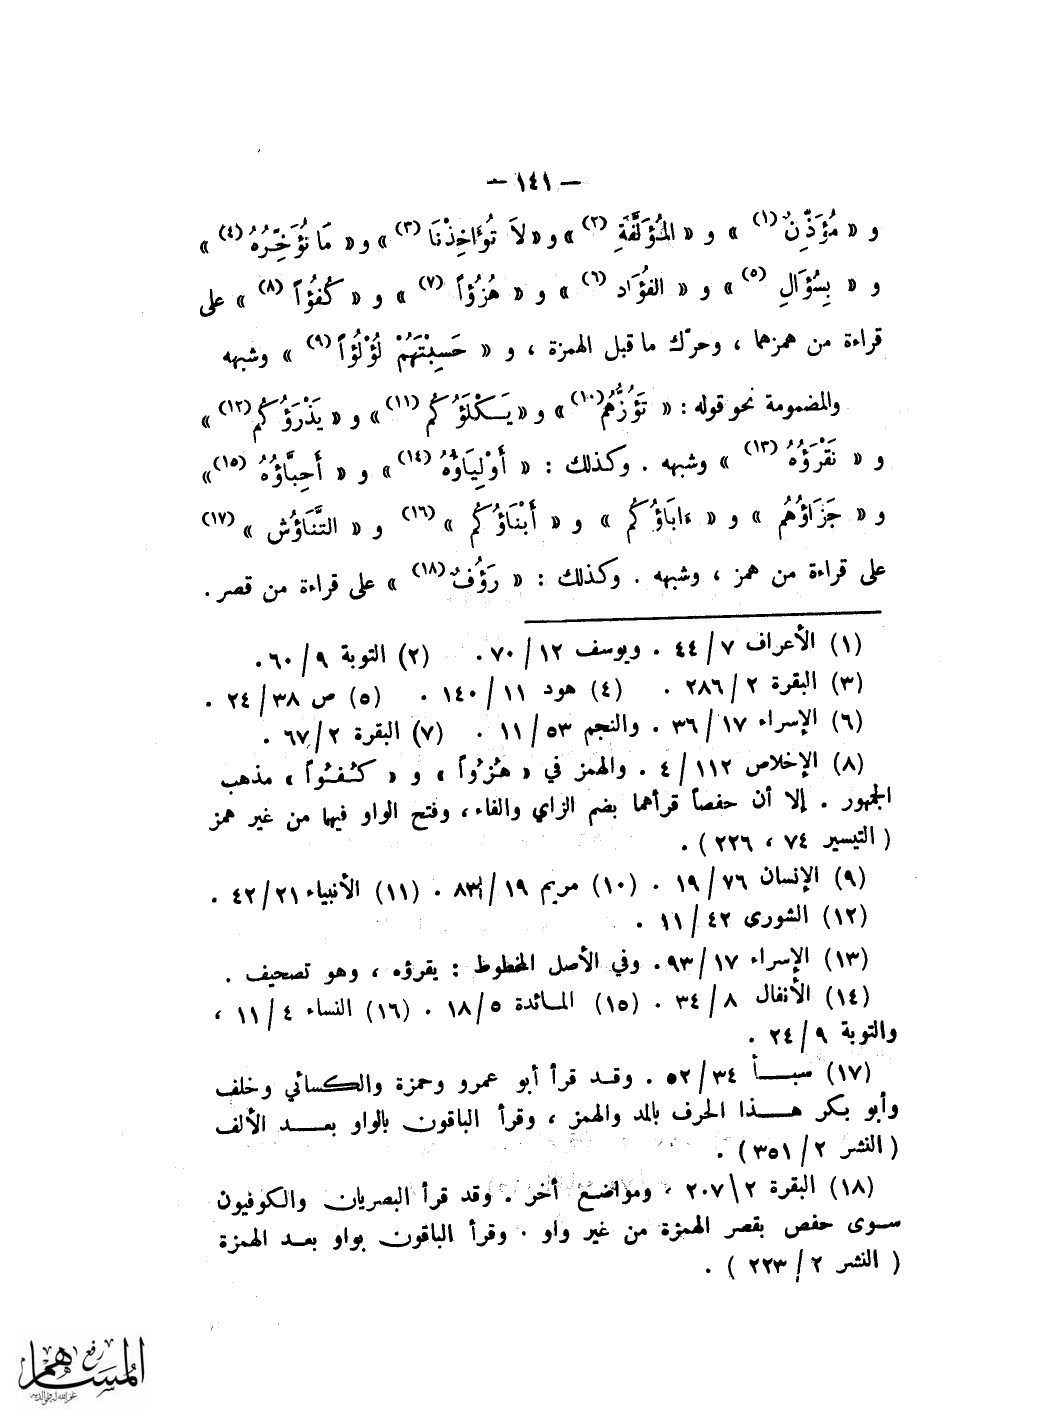 – ١٤١ –
و « مُؤَذِّنٌ (١) » و « المُؤَلَّفَةِ (٢) » و « لاَ تُوءَاخِذْنَا (٣) » و « مَا نُؤَخِّرُهُ (٤) »
و « بِسُؤَالِ (٥) » و « الفُؤَاد (٦) » و « هُزُؤاً (٧) » و « كُفُؤاً (٨) » على
قراءة من همزهما ، وحرّك ما قبل الهمزة ، و « حَسِبْتَهُمْ لُؤْلُؤاً (٩) » وشبهه
والمضمومة نحو قوله : « تَؤُزُّهُم (١٠) » و « يَكْلَؤُكُم (١١) » و « يَذْرَؤُكُم (١٢) »
و « نَقْرَؤُهُ (١٣) » وشبهه . وكذلك : « أَوْلِيَاؤُهُ (١٤) » و « أَحِبَّاؤُهُ (١٥) »
و « جَزَاؤُهُم » و « ءَابَاؤُكُم » و « أَبْنَاؤُكُم » (١٦) و « التَّنَاؤُش » (١٧)
على قراءة من همز ، وشبهه . وكذلك : « رَؤُفٌ (١٨) » على قراءة من قصر .
(١) الأعراف ٧/ ٤٤ . ويوسف ١٢ / ٧٠ . (٢) التوبة ٩ / ٦٠ .
(٣) البقرة ٢ / ٢٨٦ . (٤) هود ١١ / ١٤٠ . (٥) ص ٣٨ / ٢٤ .
(٦) الإسراء ١٧ / ٣٦ . والنجم ٥٣ / ١١ . (٧) البقرة ٢ / ٦٧ .
(٨) الإخلاص ١١٢ / ٤ . والهمز في « هُزُؤاً » و « كُفُؤاً » مذهب
الجمهور . إلا أن حفصاً قرأهما بضم الزاي والفاء ، وفتح الواو فيهما من غير همز
( التيسير ٧٤ ، ٢٢٦ ) .
(٩) الإنسان ٧٦ / ١٩ . (١٠) مريم ١٩ / ٨٣ . (١١) الأنبياء ٢١ / ٤٢ .
(١٢) الشورى ٤٢ / ١١ .
(١٣) الإسراء ١٧ / ٩٣ . وفي الأصل المخطوط : يقرؤه ، وهو تصحيف .
(١٤) الأنفال ٨ / ٣٤ . (١٥) المائدة ٥ / ١٨ . (١٦) النساء ٤ / ١١ ،
والتوبة ٩ / ٢٤ .
(١٧) سبأ ٣٤ / ٥٢ . وقد قرأ أبو عمرو وحمزة والكسائي وخلف
وأبو بكر هذا الحرف بالمد والهمز ، وقرأ الباقون بالواو بعد الألف
( النشر ٢ / ٣٥١ ) .
(١٨) البقرة ٢ \ ٢٠٧ ، ومواضع أخر . وقد قرأ البصريان والكوفيون
سوى حفص بقصر الهمزة من غير واو . وقرأ الباقون بواو بعد الهمزة
( النشر ٢ / ٢٢٣ ) .
رفع
المساهم
غفر الله له ولوالديه